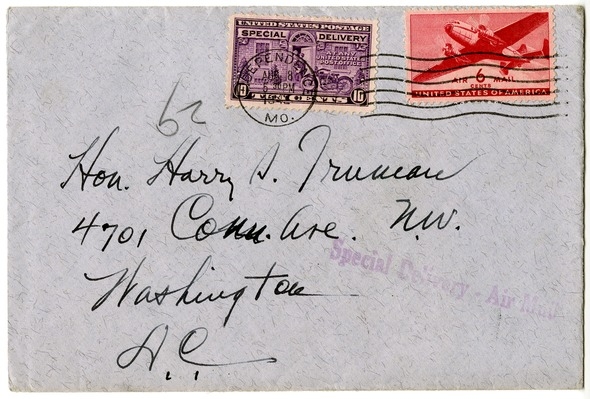 UNITED STATES POSTAGE
SPECIAL DELIVERY
AT ANY
UNITED STATES
POST OFFICE
10 10
INDEPENDENCE
AUG 8
PM
MO.
AIR MAIL
6
CENTS
UNITED STATES OF AMERICA
62
Hon. Harry S. Truman
4701 Conn. Ave. N.W.
Washington
D.C.
Special Delivery - Air Mail